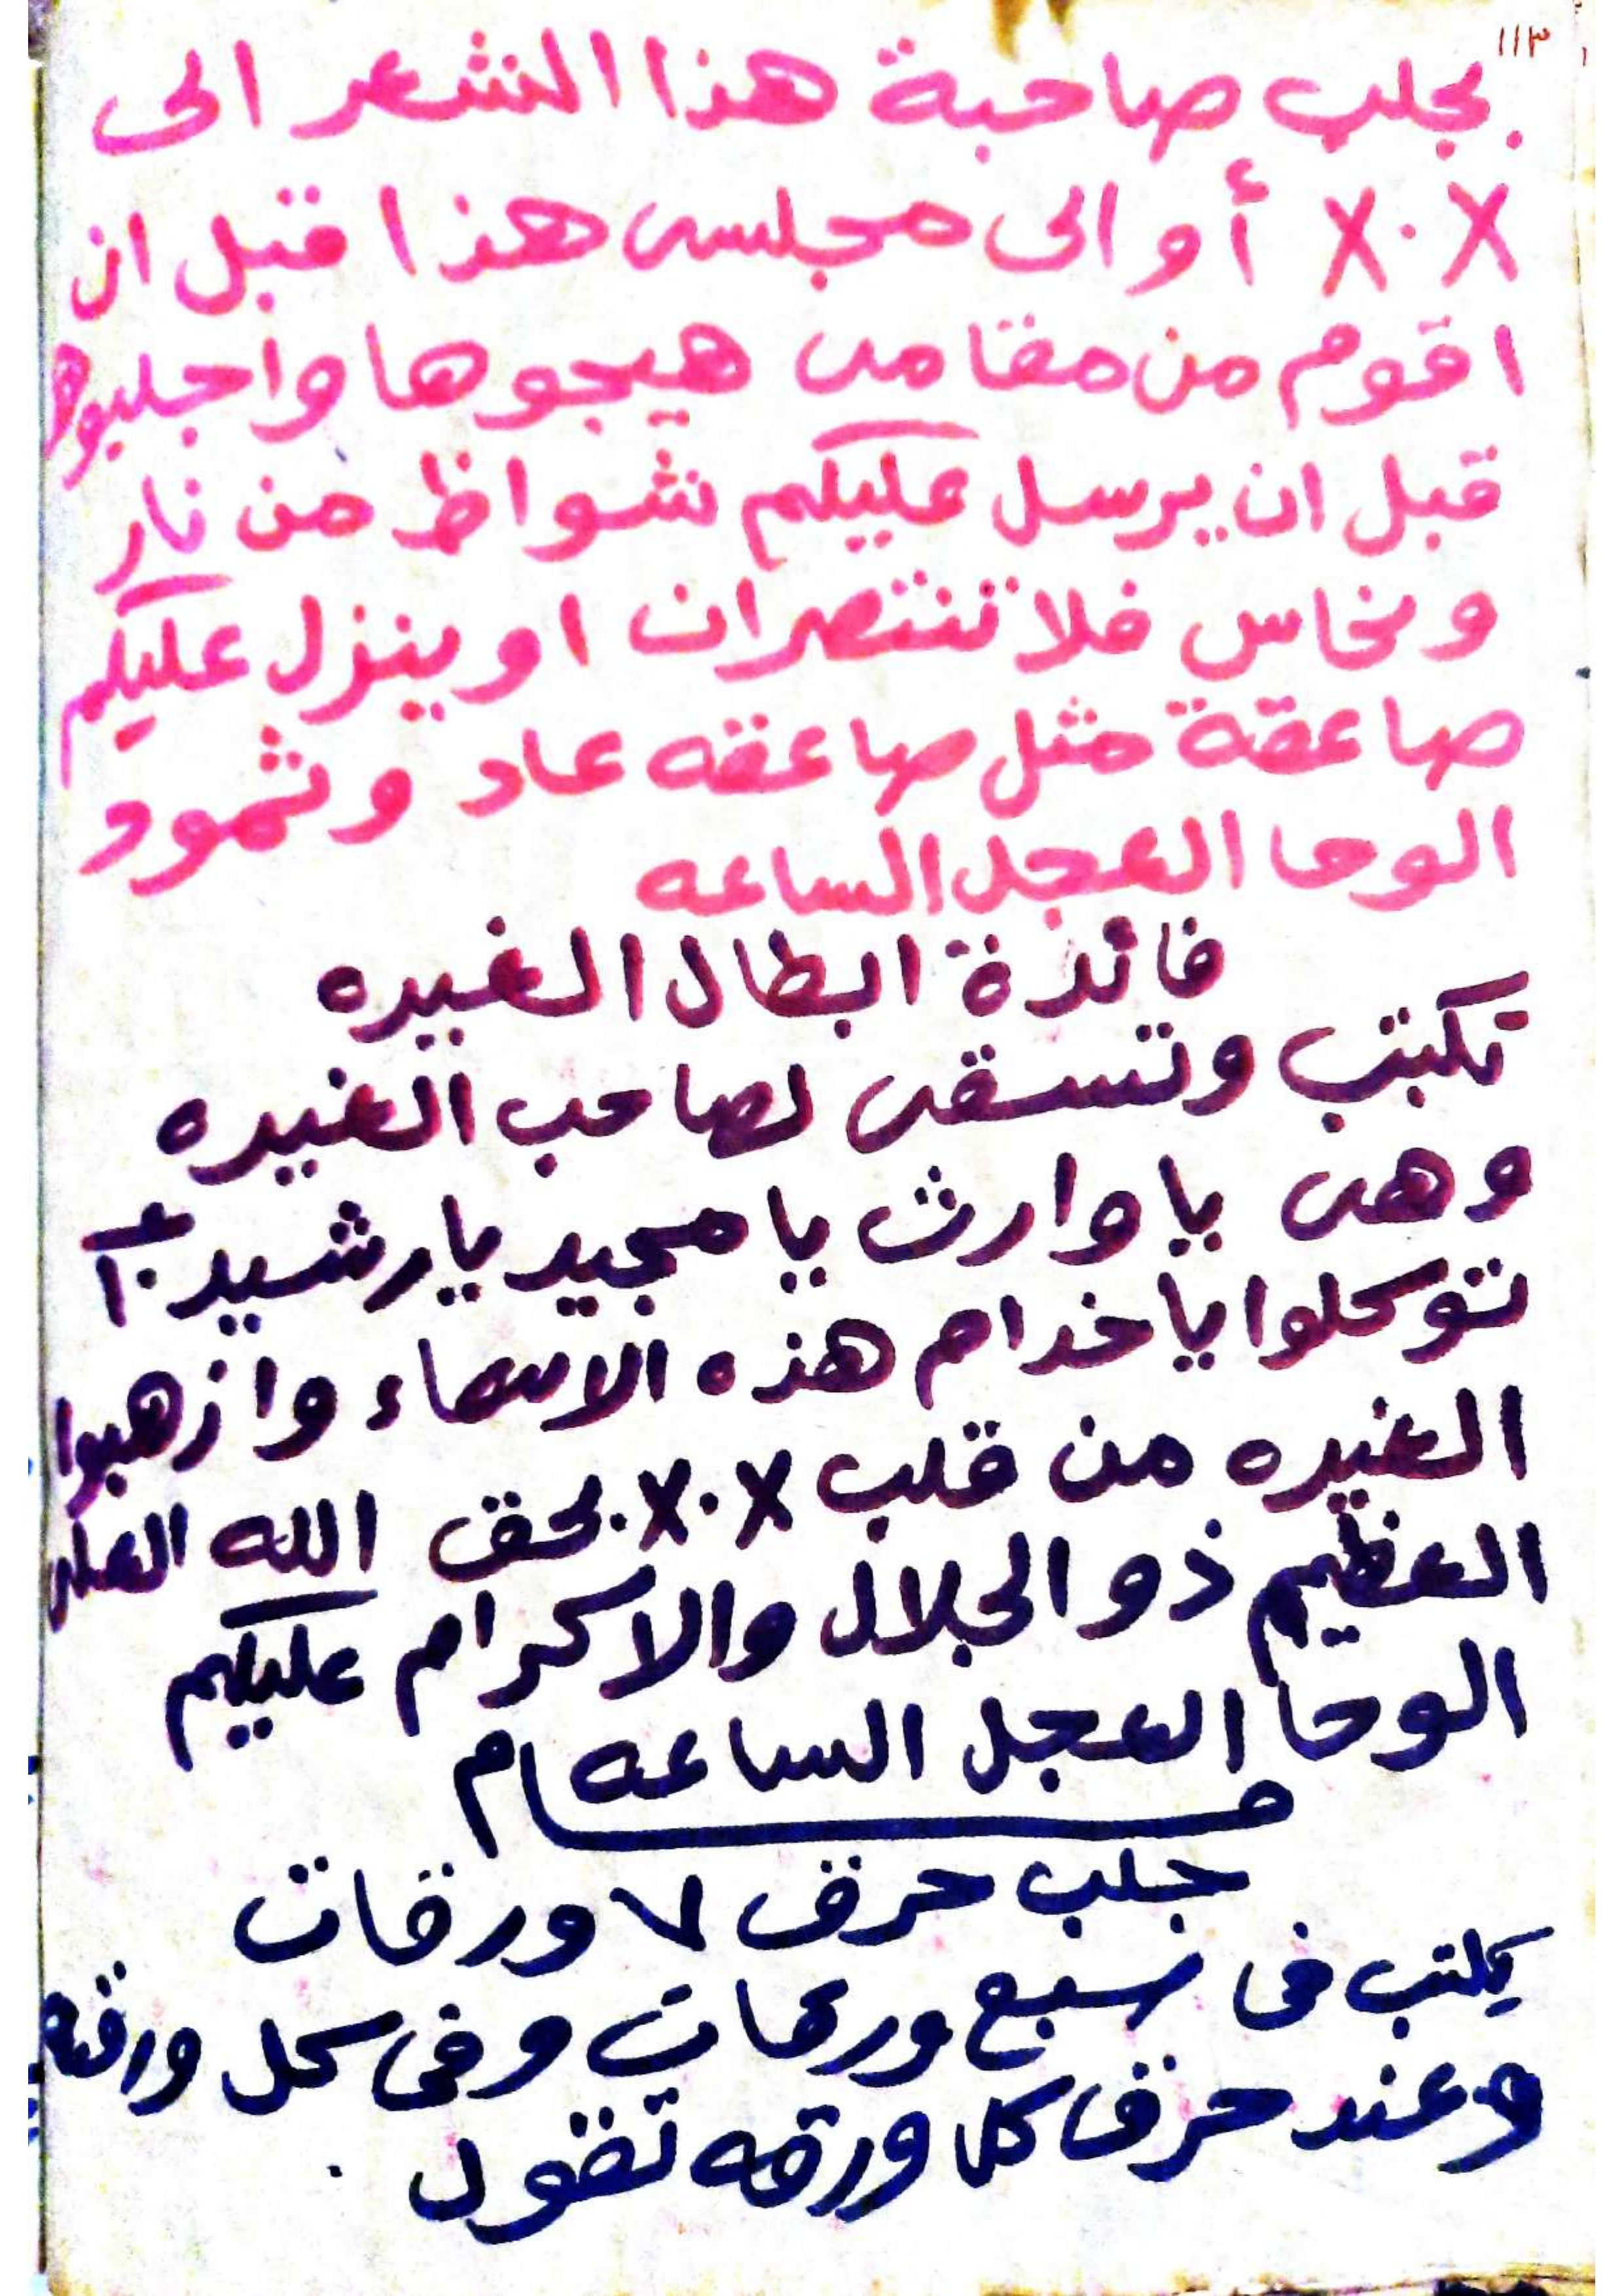 ١١٣
بجلب صاحبة هذا الشعر الى
X.X أو الى مجلسى هذا قبل ان
اقوم من مقامى هيجوها واجلبوها
قبل ان يرسل عليكم شواظ من نار
ونحاس فلا تنتصران او ينزل عليكم
صاعقة مثل صاعقه عاد وثمود
الوحا العجل الساعه
فائدة ابطال الغيره
تكتب وتسقى لصاحب الغيره
وهى يا وارث يا مجيد يا رشيد
توكلوا يا خدام هذه الاسماء واذهبوا
الغيره من قلب X.X بحق الله العلى
العظيم ذو الجلال والاكرام عليكم
الوحا العجل الساعه
جلب حرق ٧ ورقات
يكتب فى سبع ورقات وفى كل ورقه
وعند حرق كل ورقه تقول